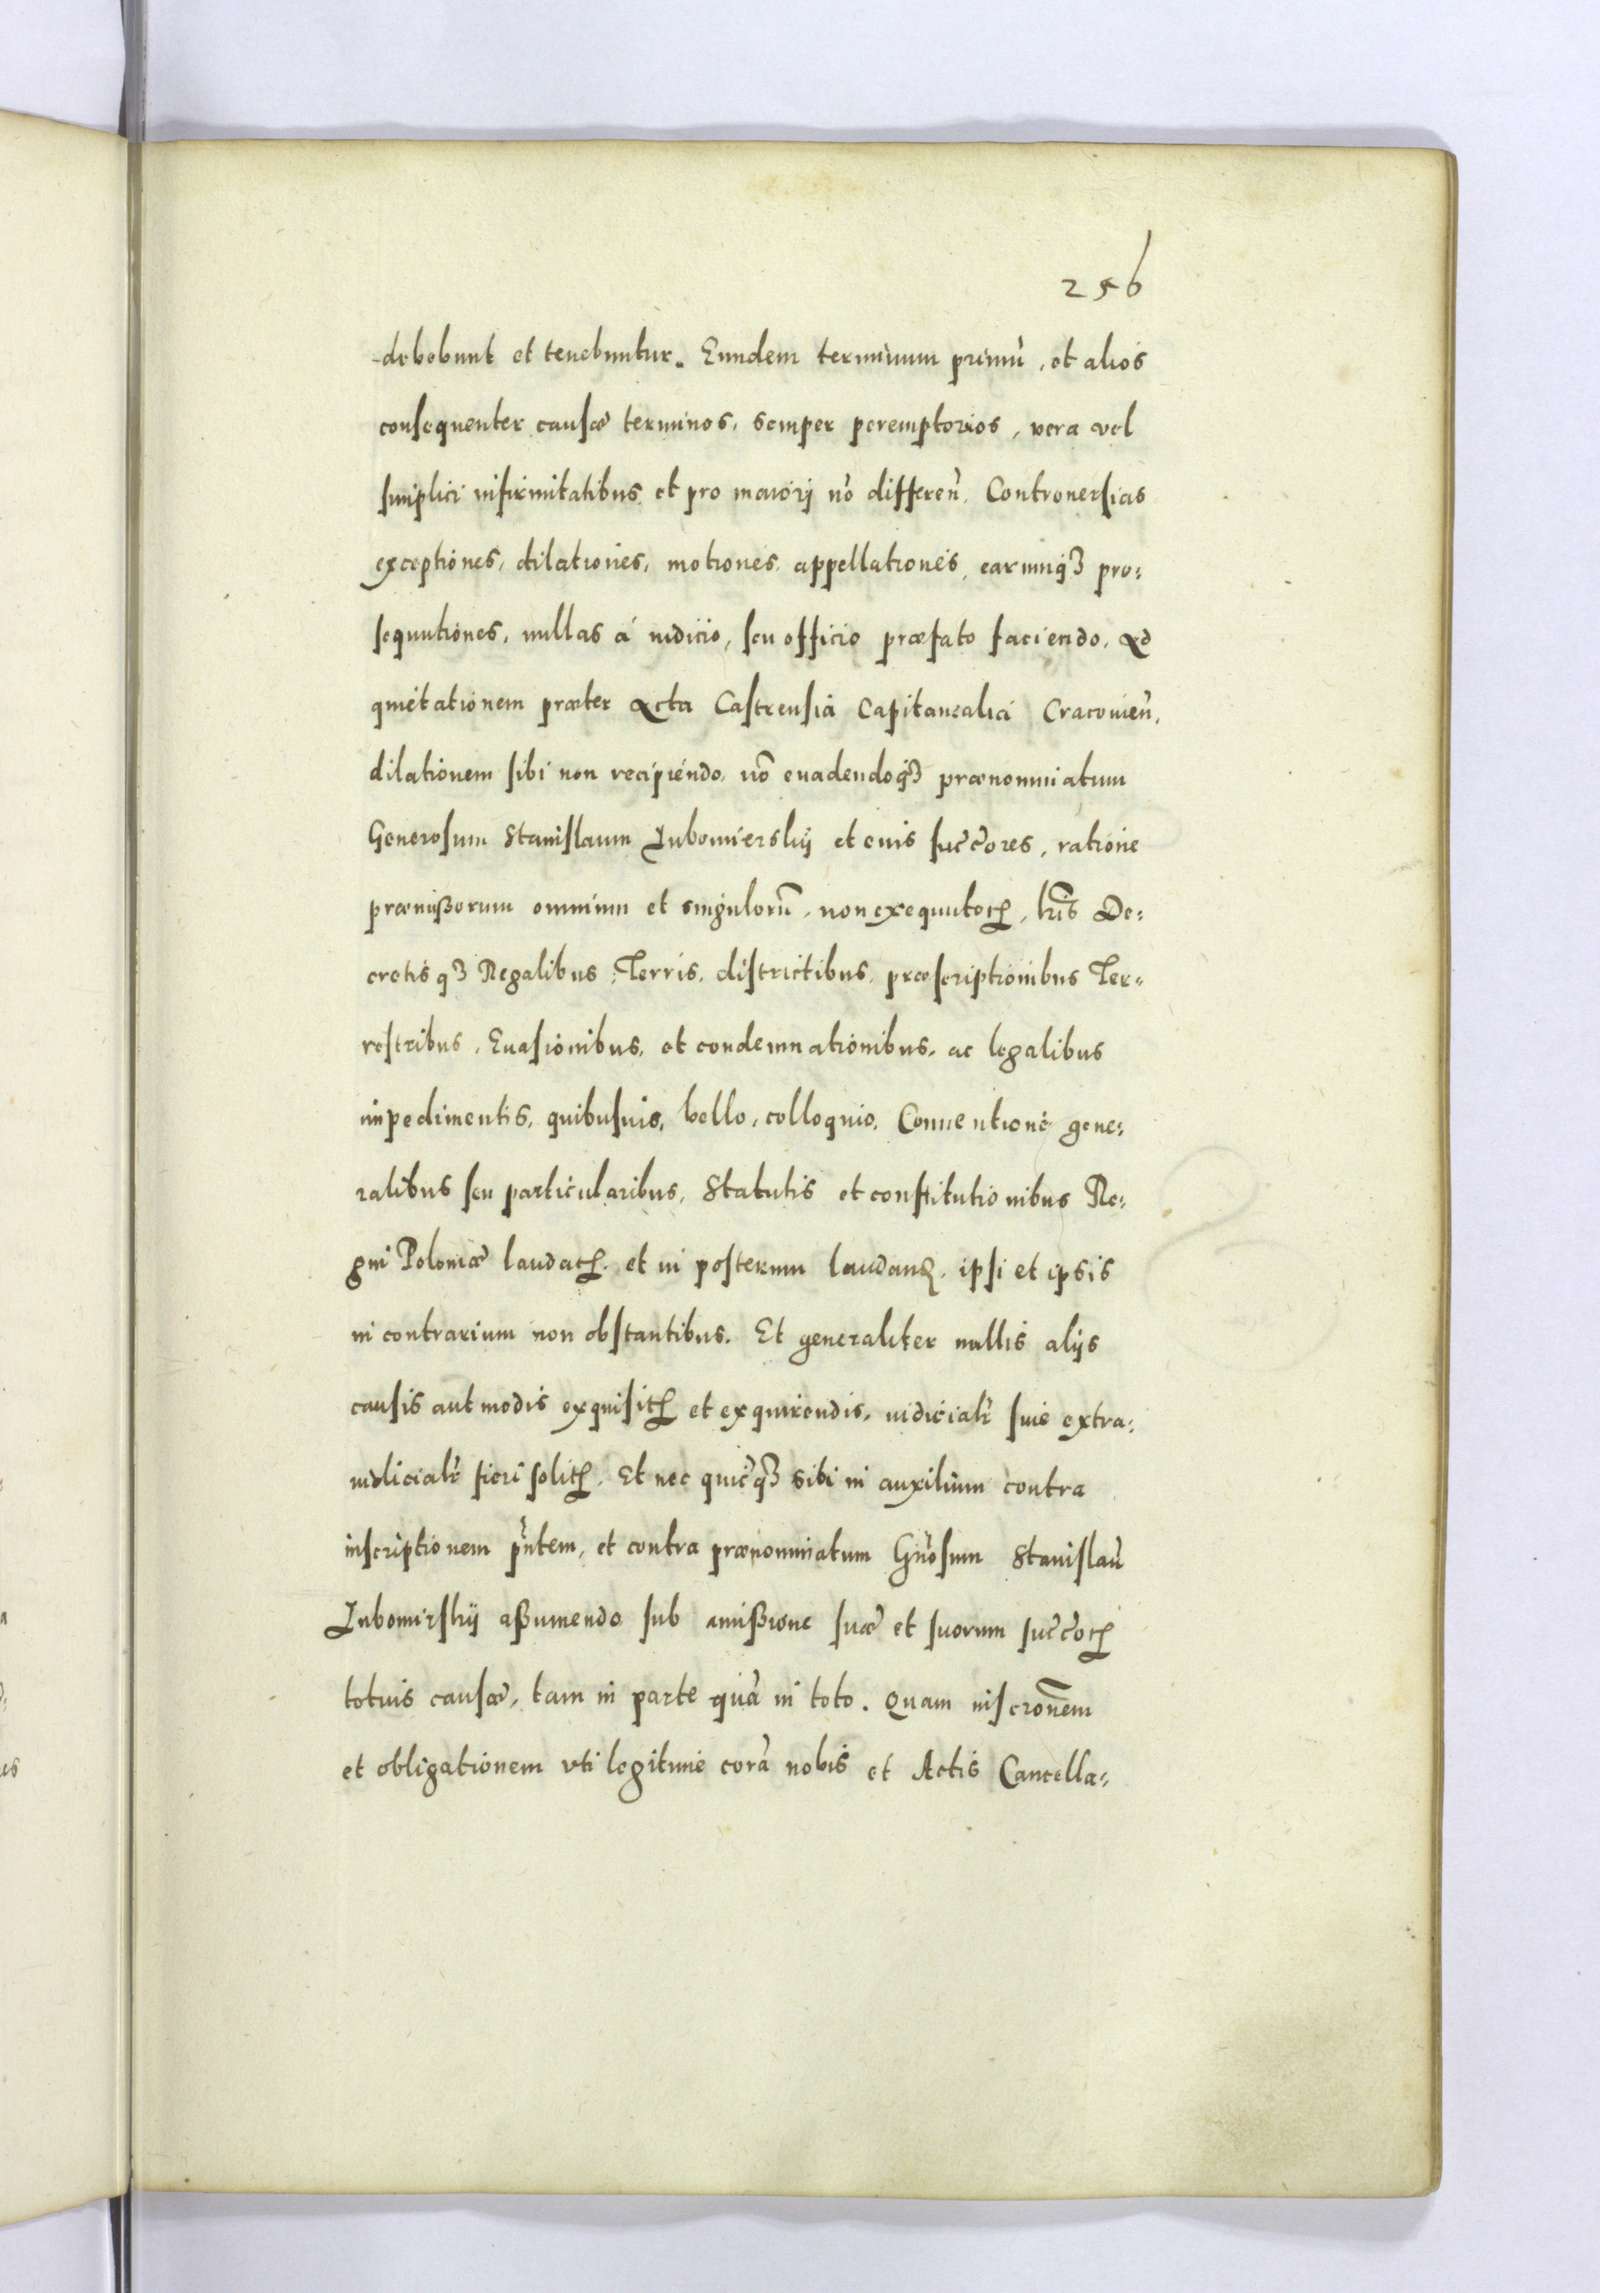 256
debebunt et tenebuntur. Eundem terminum primũ, et alios
consequenter causæ terminos, semper peremptorios, vera vel
simplici infirmitatibus et pro maiori nõ differeñ. Controuersias
exceptiones, dilationes, motiones, appellationes, earumq3 pro:
sequutiones, nullas á iudicio, seu officio præfato faciendo, Ad
quietationem præter Acta Castrensia Capitanealia Cracouieñ,
dilationem sibi non recipiendo, nõ euadendoq3 prænominatum
Generosum Stanislaum Lubomierskij et euis succ̃ores, ratione
præmissorum omnium et singulorũ, non exequutoꝝ, lr̃is De:
cretisq3 Regalibus, Terris, districtibus, præscriptionibus Ter:
restribus, Euasionibus, et condemnationibus, ac legalibus
impedimentis, quibusuis, bello, colloquio, Conuentione gene:
ralibus seu particularibus, Statutis et constitutionibus Re:
gni Poloniæ laudatꝭ, et in posterum laudanꝭ, ipsi et ipsis
in contrarium non obstantibus. Et generaliter nullis alijs
causis aut modis exquisitꝭ et exquirendis, iudicialr̃ siue extra:
iudicialr̃ fieri solitꝭ. Et nec quicq̃3 sibi in auxilium contra
inscriptionem pñtem, et contra prænominatum Gñosum Stanislaũ
Lubomirskij assumendo sub amissione suæ et suorum succ̃oꝝ
totius causæ, tam in parte quã in toto. Quam inscrõnem
et obligationem vti legitime corã nobis et Actis Cancella: